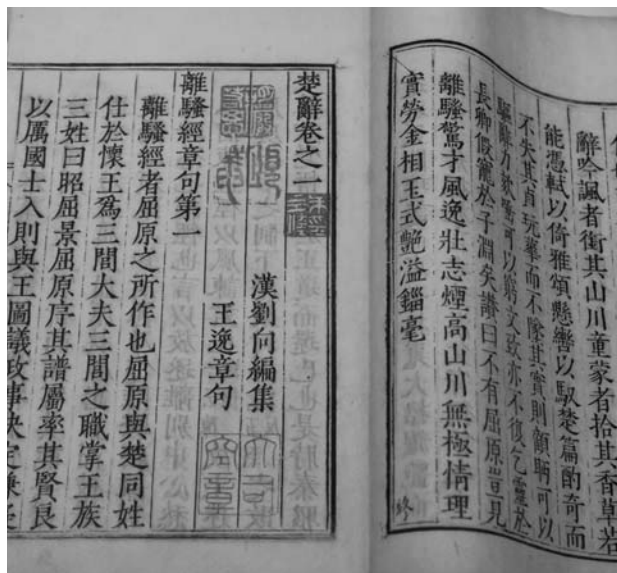 辭吟諷者銜其山川童蒙者拾其香草若
能憑軾以倚雅頌懸轡以馭楚篇酌奇而
不失其貞玩華而不墜其實則顧盻可以
驅辭力欬唾可以窮文致亦不復乞靈於
長卿假寵於子淵矣讚曰不有屈原豈見
離騷驚才風逸壯志煙高山川無極情理
實勞金相玉式艷溢錙毫
終
楚辭卷之一
漢劉向編集
王逸章句
離騷經章句第一
離騷經者屈原之所作也屈原與楚同姓
仕於懷王爲三閭大夫三閭之職掌王族
三姓曰昭屈景屈原序其譜屬率其賢良
以厲國士入則與王圖議政事決定